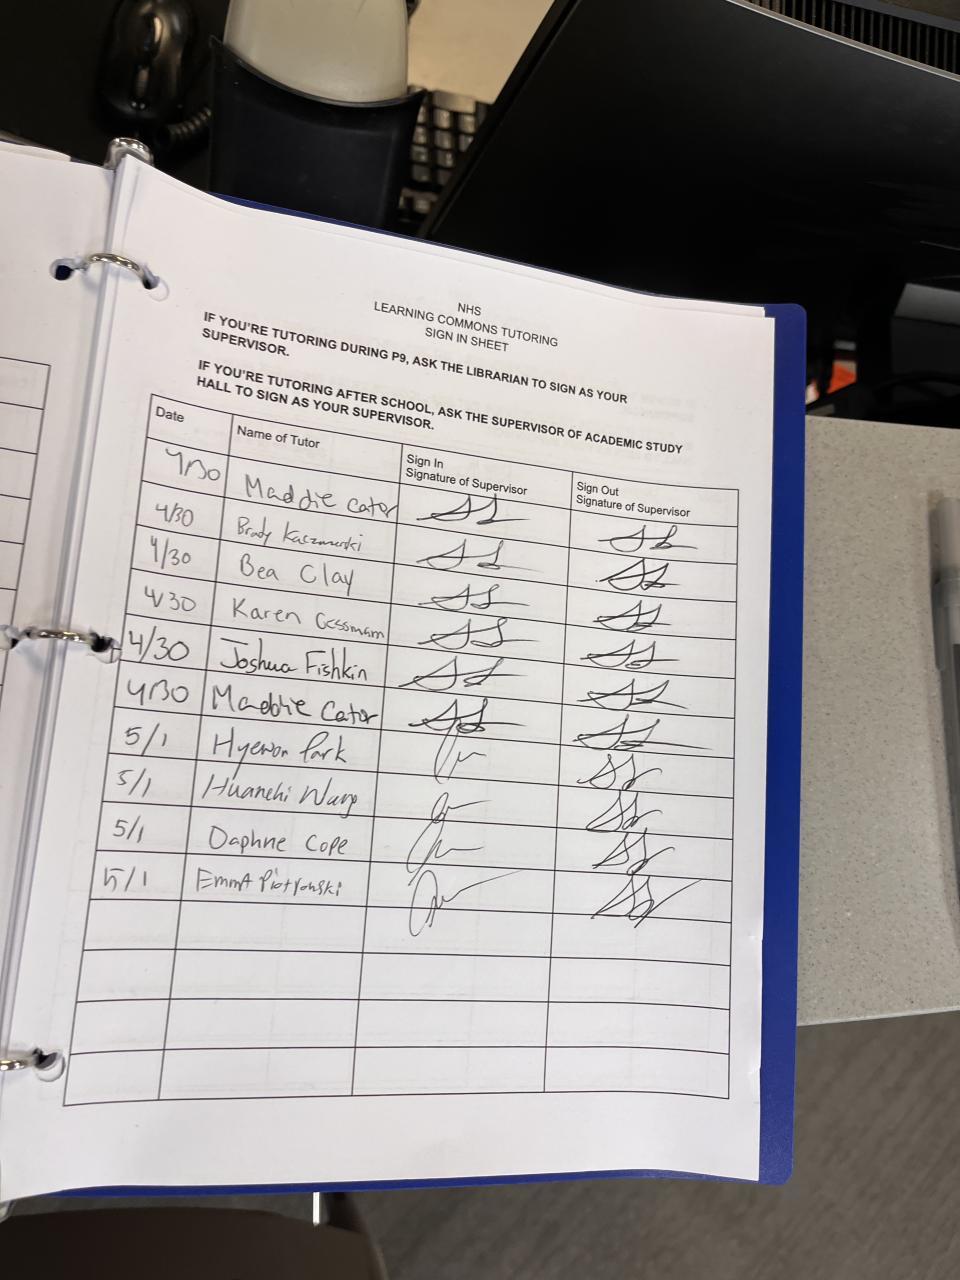 NHS
LEARNING COMMONS TUTORING
SIGN IN SHEET
IF YOU'RE TUTORING DURING P9, ASK THE LIBRARIAN TO SIGN AS YOUR
SUPERVISOR.
IF YOU'RE TUTORING AFTER SCHOOL, ASK THE SUPERVISOR OF ACADEMIC STUDY
HALL TO SIGN AS YOUR SUPERVISOR.
Date Name of Tutor Sign In Signature of Supervisor Sign Out Signature of Supervisor
4/30 Maddie Cator
4/30 Brady Kaczmarski
4/30 Bea Clay
4/30 Karen
4/30 Joshua Fishkin
4/30 Maddie Cator
5/1 Hyewon Park
5/1 Wang
5/1 Daphne Cope
5/1 Emma Piotrowski